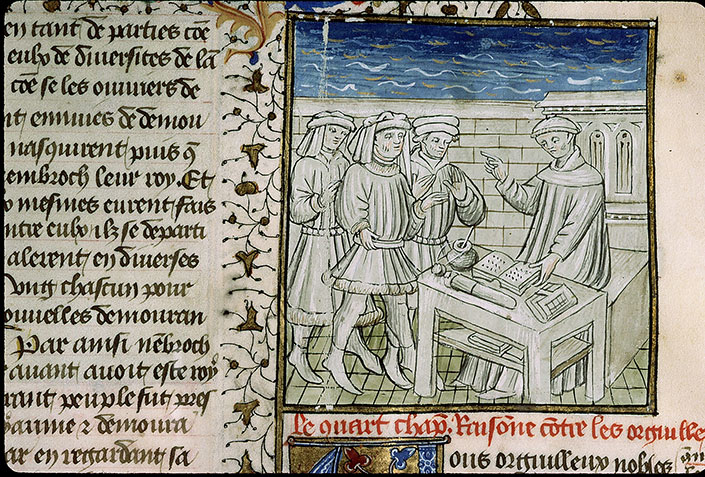 en tant de parties cōe
eulx de diuersites de lā
cōe se les ouuriers de
nt ennuies de demou
nasquirent puis q̄
embroch leur roy. Et
mesmes eurent fais
ntre eulx ilz se departi
alerent en diuerses
ung chascun pour
ouuelles demouran
Par ainsi nēbroch
auant auoit este roy
rant peuple fut pres
yaume ⁊ demoura
ar en regardant sa
Le quart chap̄. Raisōne cōtre les orguille
ous orguilleux nobles